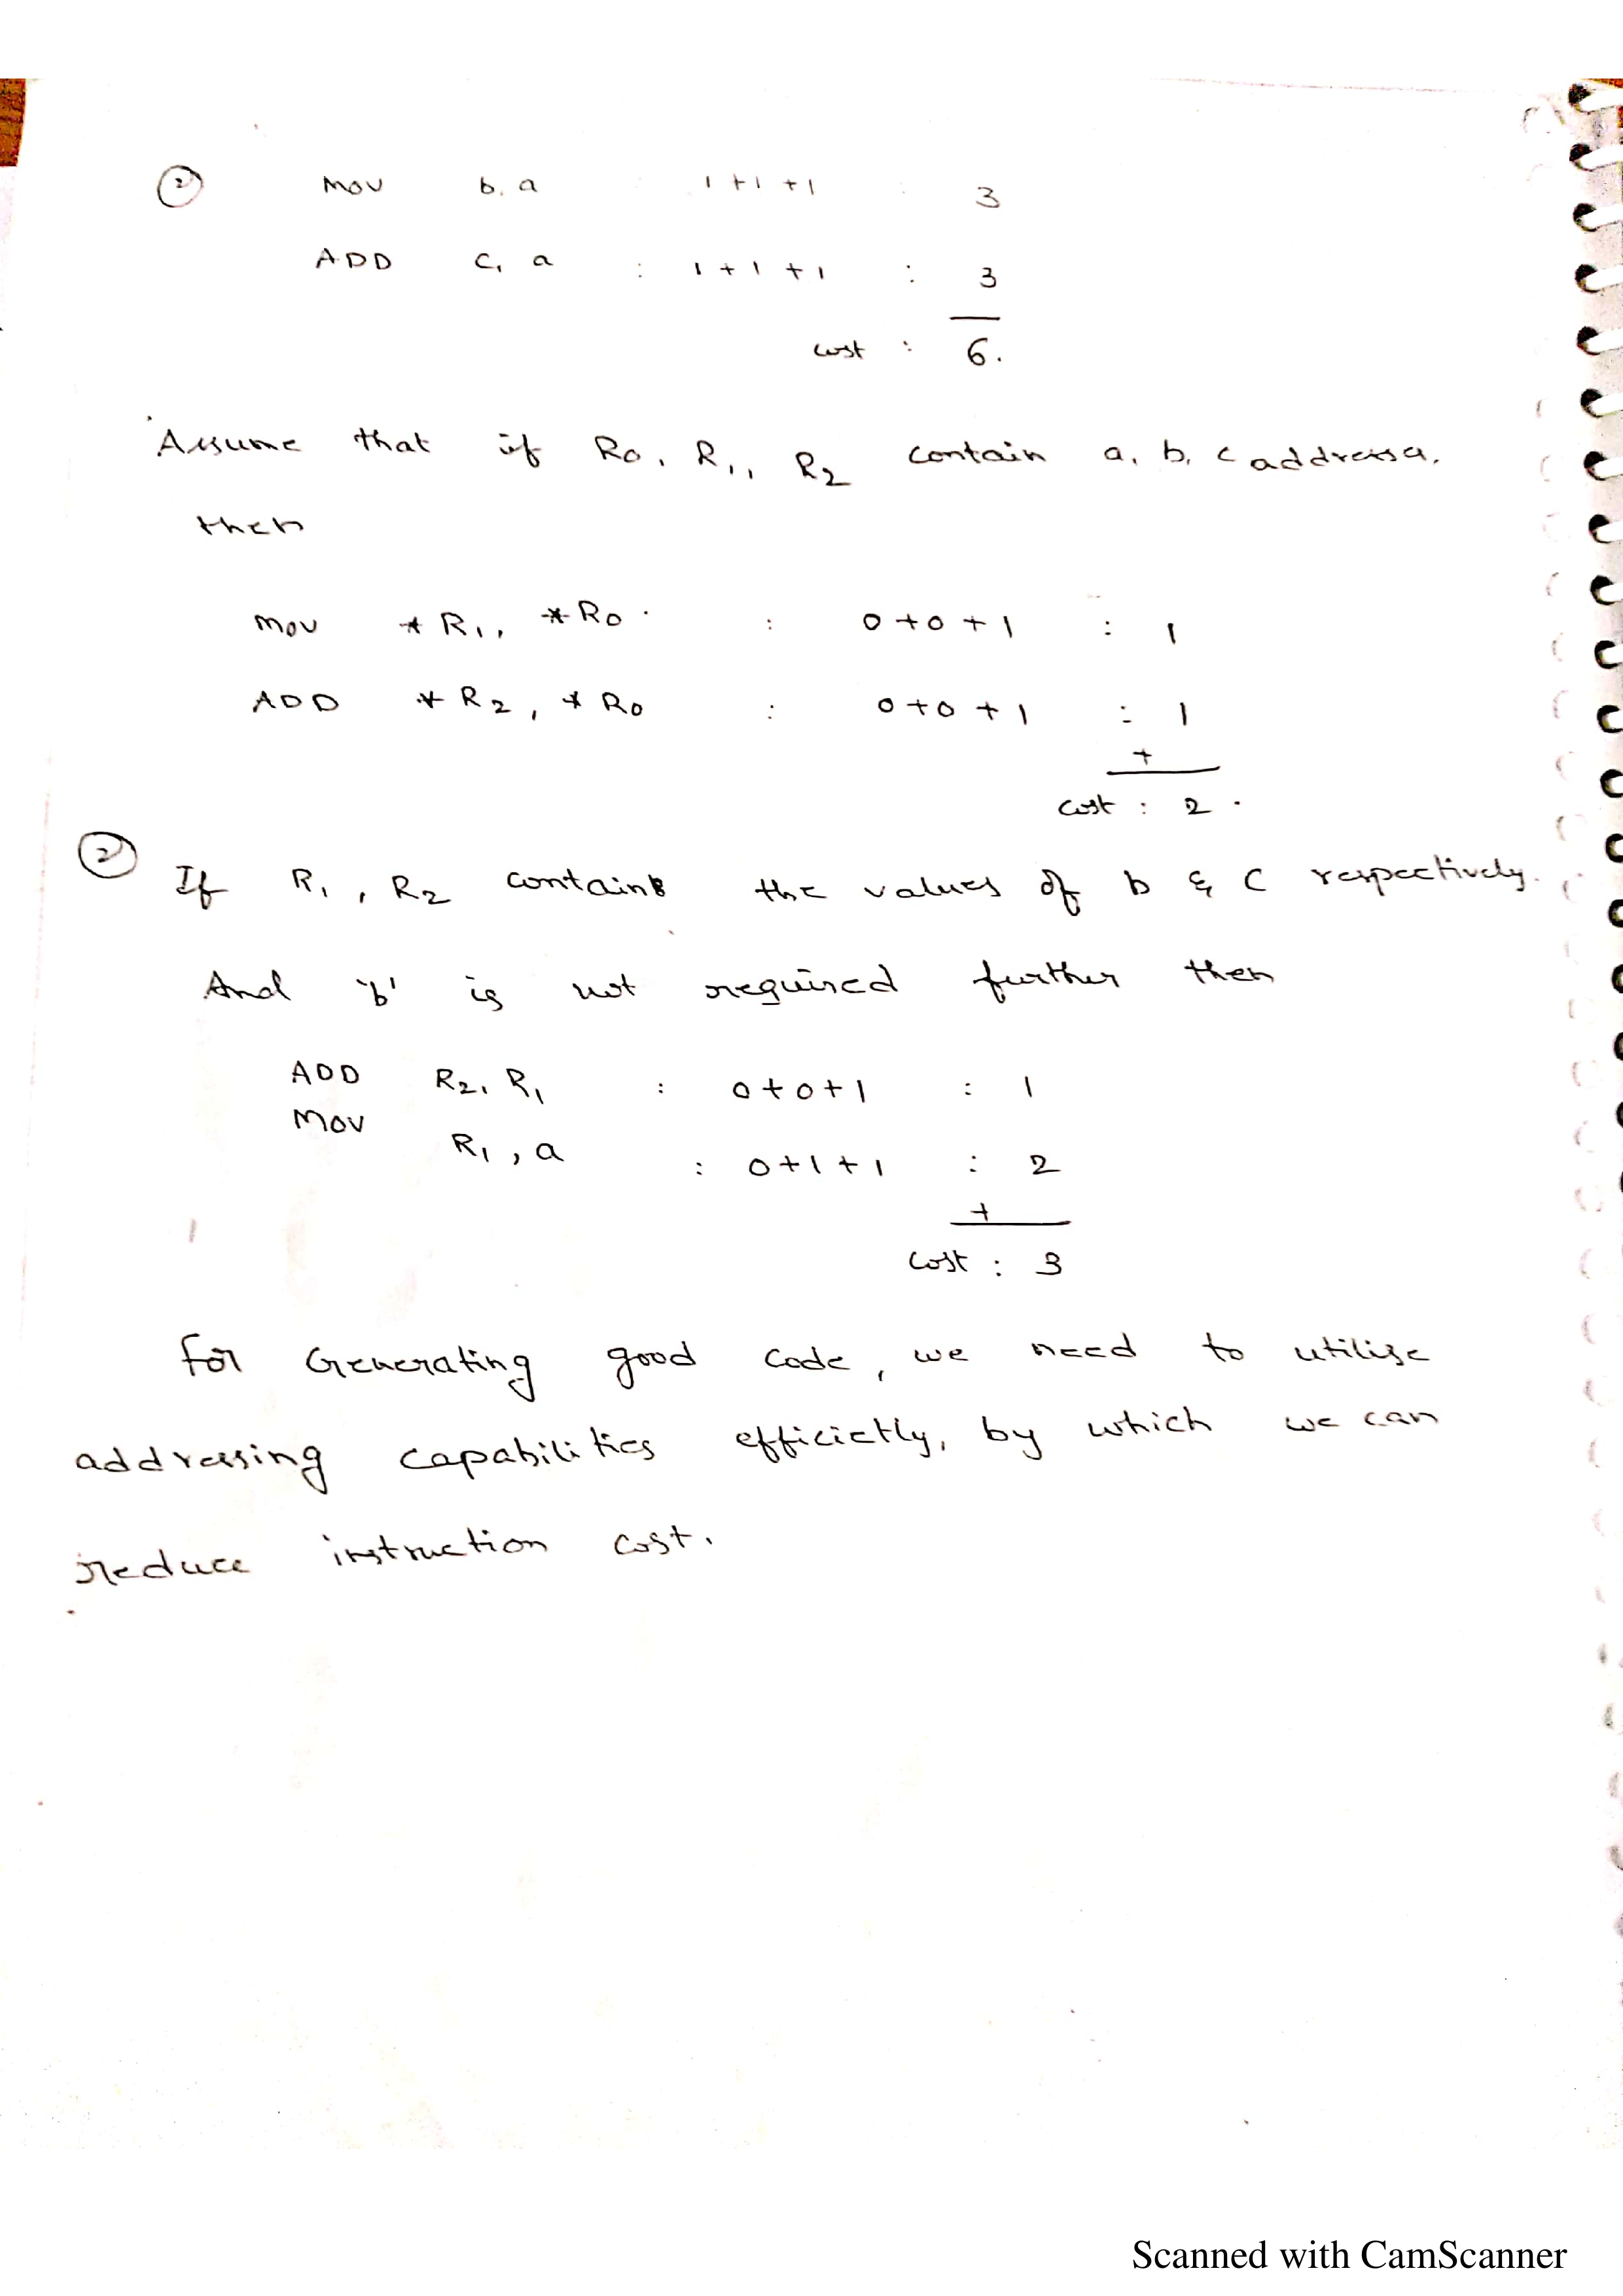 ② MOV b, a 1+1+1 : 3
ADD C, a : 1+1+1 : 3
cost : 6.
Assume that if R0, R1, R2 contain a, b, c addresses.
then
MOV *R1, *R0 : 0+0+1 : 1
ADD *R2, *R0 : 0+0+1 : 1
+
cost : 2.
② If R1, R2 contains the values of b & C respectively.
And 'b' is not required further then
ADD R2, R1 : 0+0+1 : 1
MOV R1, a : 0+1+1 : 2
+
cost : 3
For Generating good code, we need to utilise
addressing capabilities efficietly, by which we can
reduce instruction cost.
Scanned with CamScanner